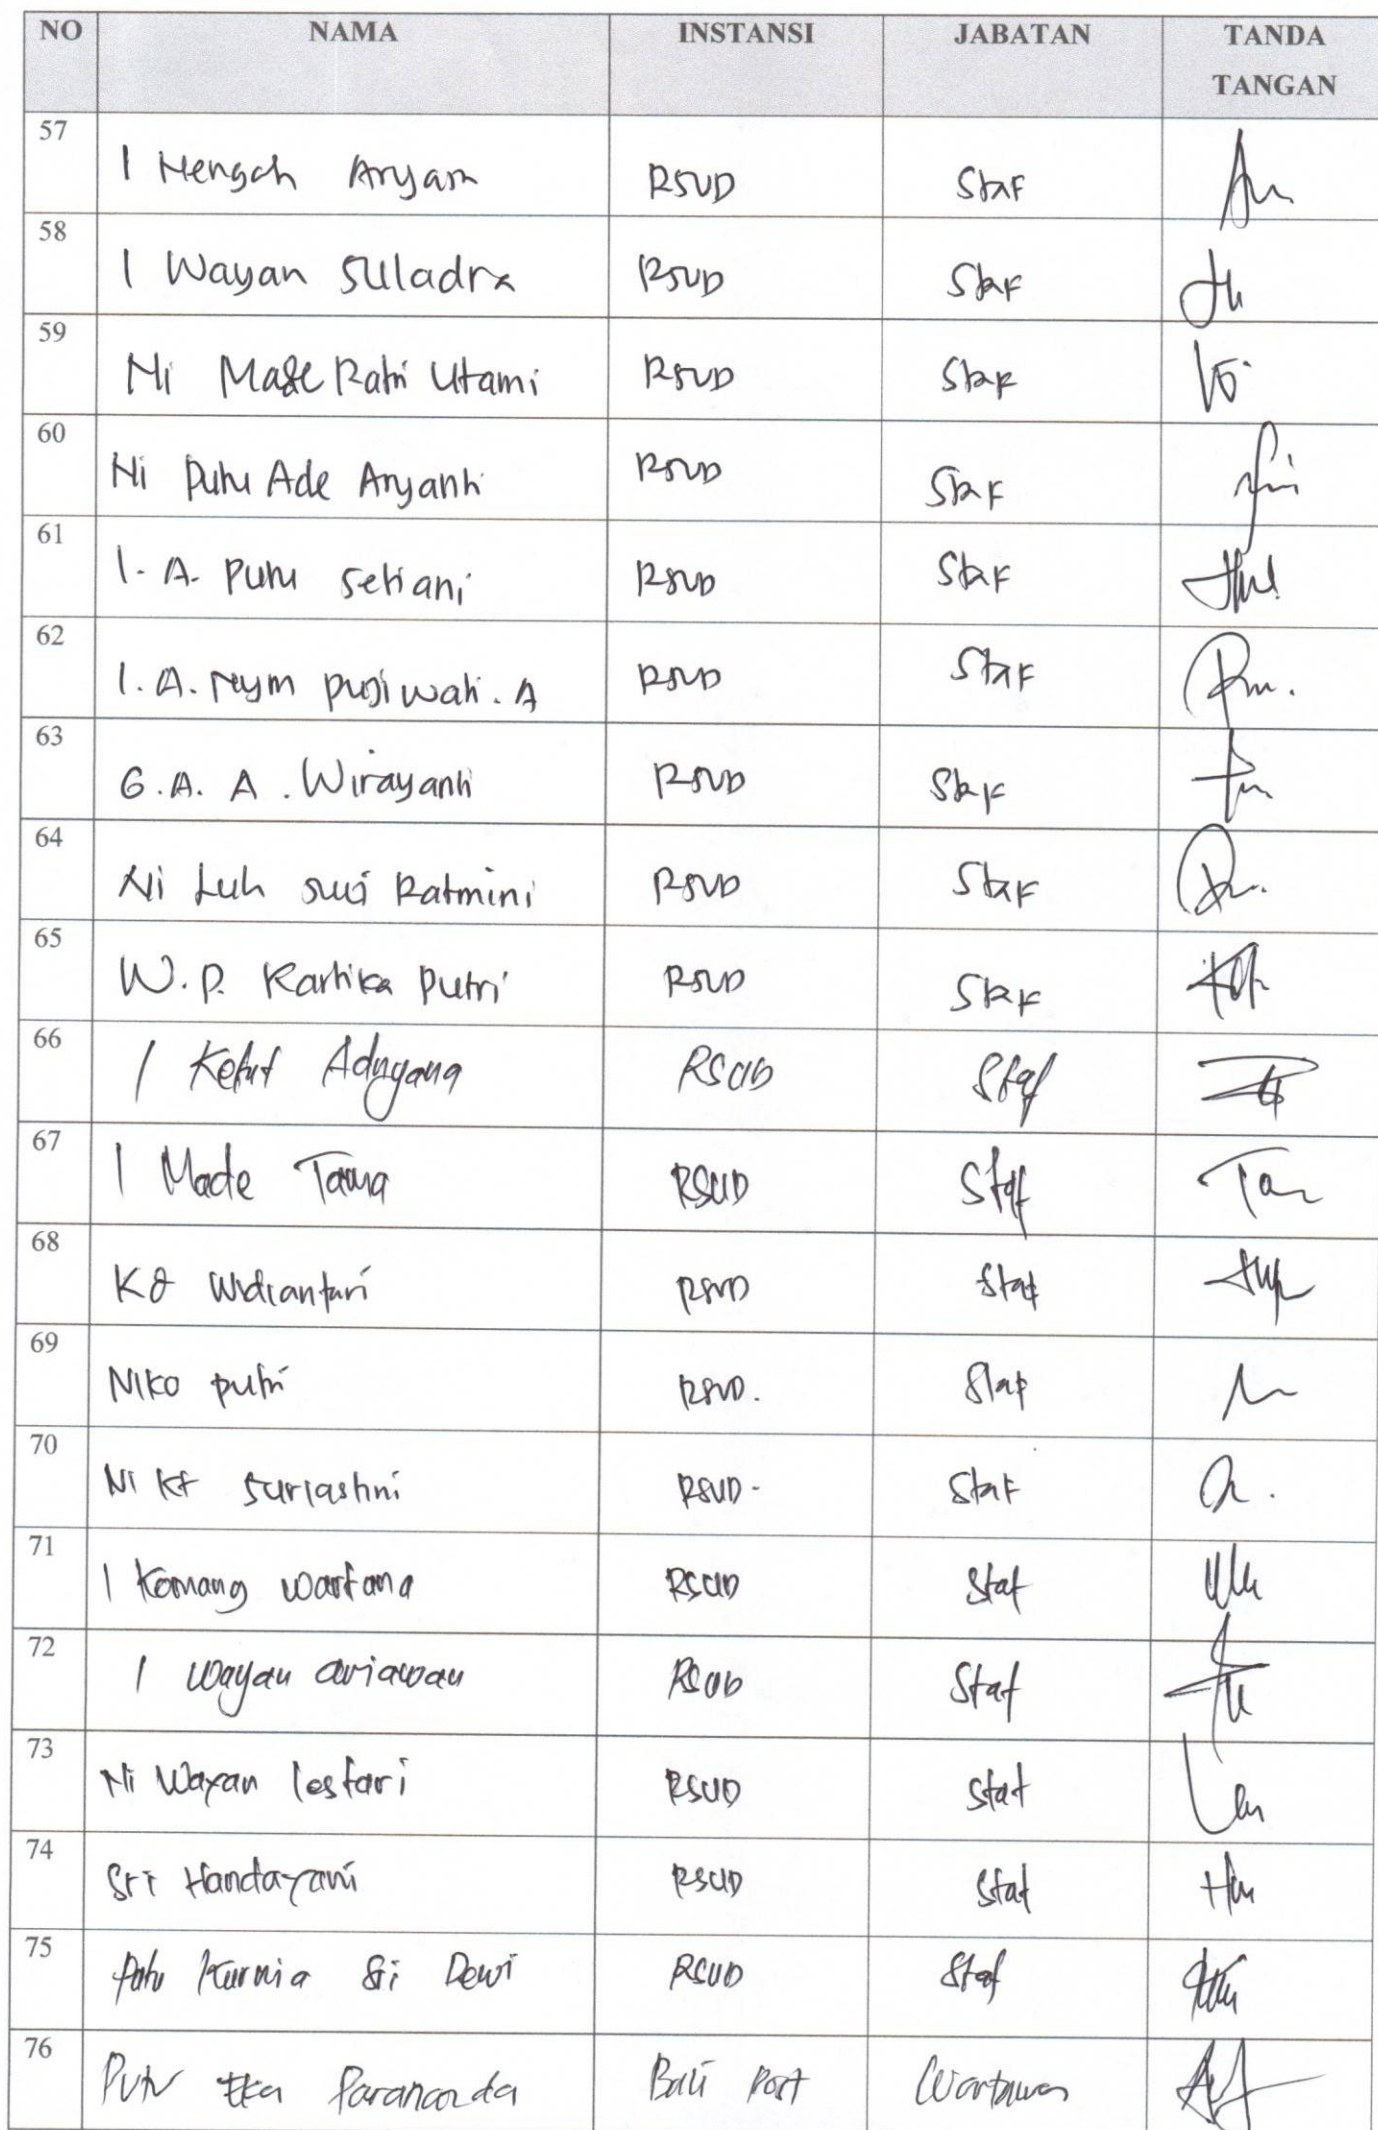 NO NAMA INSTANSI JABATAN TANDA
TANGAN
57 I Nengah Aryam RSUD Staf
58 I Wayan Suladra RSUD Staf
59 Ni Made Ratri Utami RSUD Staf
60 Ni Putu Ade Aryanti RSUD Staf
61 I. A. Putu Setiani RSUD Staf
62 I. A. Nym Pujiwati. A RSUD Staf
63 G. A. A. Wirayanti RSUD Staf
64 Ni Luh Suci Ratmini RSUD Staf
65 W. P. Kartika Putri RSUD Staf
66 I Ketut Adnyana RSUD Staf
67 I Made Tama RSUD Staf
68 Kt Widiantari RSUD Staf
69 Niko putri RSUD. Staf
70 Ni Kt Suriastini RSUD. Staf
71 I Komang wartana RSUD Staf
72 I wayan ariawan RSUD Staf
73 Ni Wayan lestari RSUD Staf
74 Sri Handayani RSUD Staf
75 Putu Kurnia Sri Dewi RSUD Staf
76 Putu Eka Parananda Bali Post Wartawan